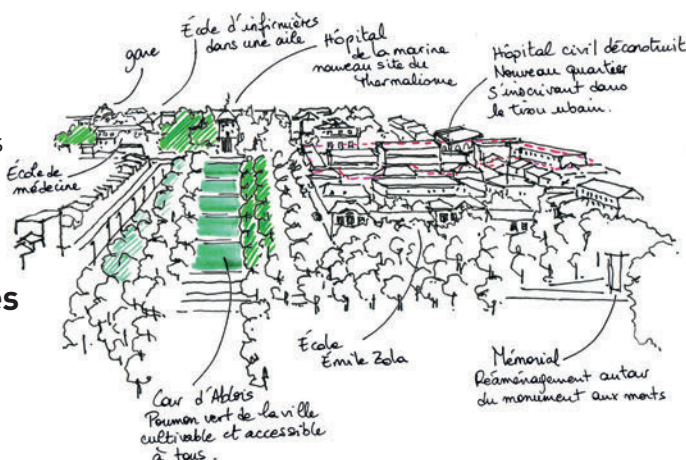 gare
École d'infirmières
dans une aile
Hôpital
de la marine
nouveau site du
Thermalisme
Hôpital civil déconstruit
Nouveau quartier
s'inscrivant dans
le tissu urbain.
s
École de
médecine
es
Cour d'Ablois
Poumon vert de la ville
cultivable et accessible
à tous.
École
Émile Zola
Mémorial
Réaménagement autour
du monument aux morts